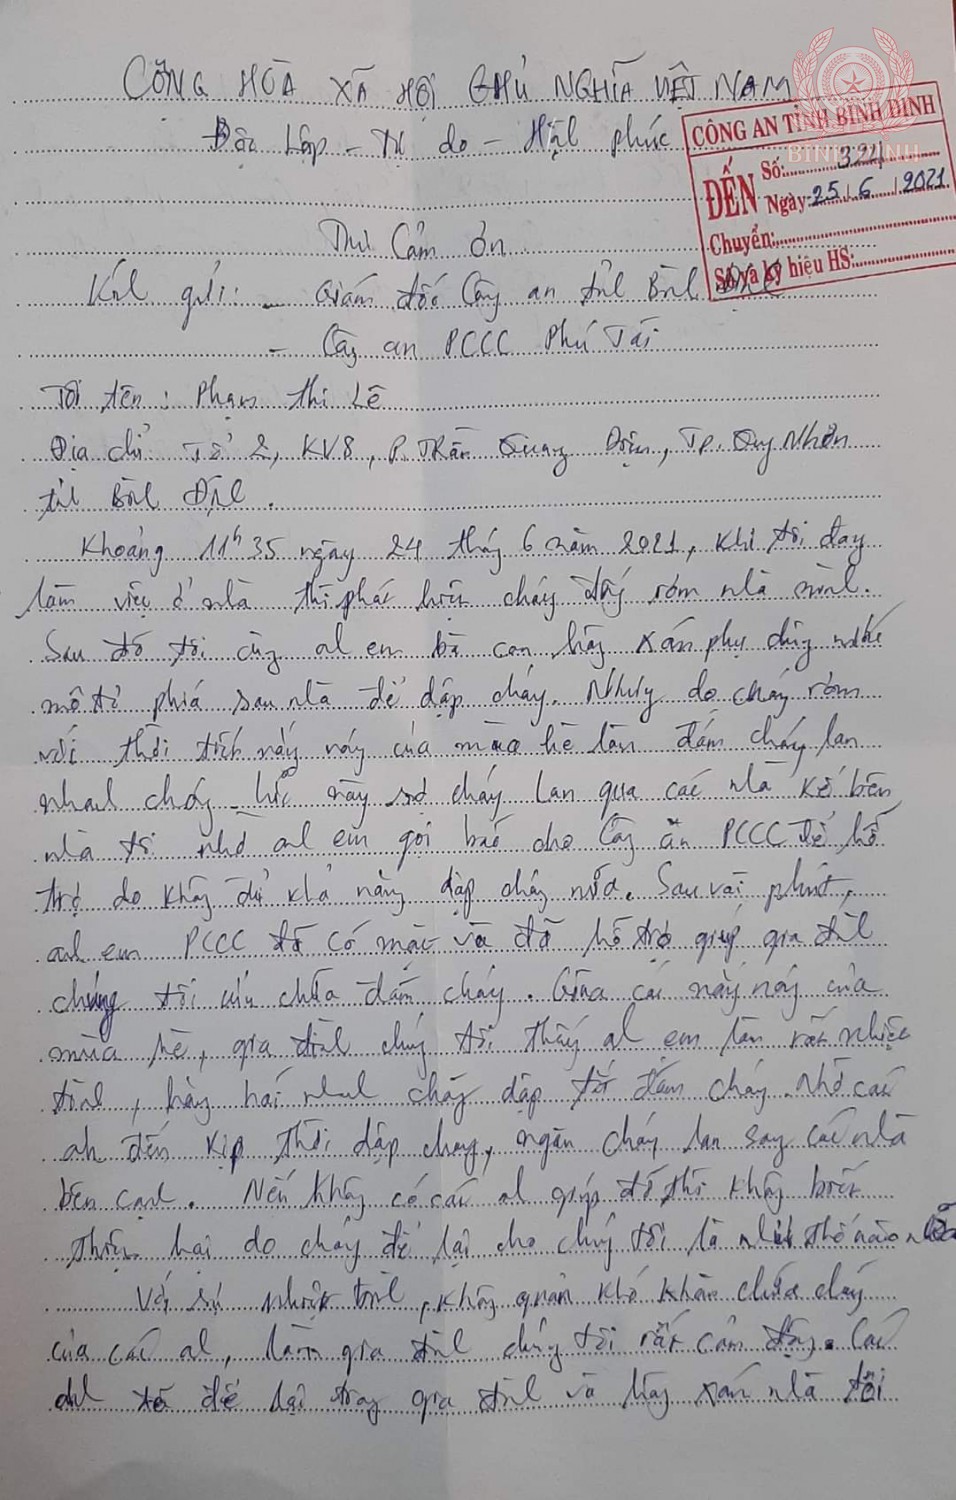 CỘNG HÒA XÃ HỘI CHỦ NGHĨA VIỆT NAM
Độc lập - Tự do - Hạnh phúc
CÔNG AN TỈNH BÌNH ĐỊNH
ĐẾN
Số: 324
Ngày 25/6/2021
Chuyển:
Số và ký hiệu HS:
Thư Cảm ơn
Kính gửi: - Giám đốc Công an tỉnh Bình Định
- Công an PCCC Phú Tài
Tôi tên: Phạm Thị Lê
Địa chỉ Tổ 2, KV8, P. Trần Quang Diệu, Tp. Quy Nhơn
tỉnh Bình Định.
Khoảng 11h35 ngày 24 tháng 6 năm 2021, khi tôi đay
làm việc ở nhà thì phát hiện cháy đống rơm nhà mình.
Sau đó tôi cùng anh em bà con hàng xóm phụ dùng
mô tơ phía sau nhà để dập cháy. Nhưng do cháy rơm
với thời tiết nắng nóng của mùa hè làm đám cháy lan
nhanh chóng lúc này sợ cháy lan qua các nhà kế bên
nhà tôi nhờ anh em gọi báo cho Công an PCCC để hỗ
trợ do không đủ khả năng dập cháy nữa. Sau vài phút,
anh em PCCC đã có mặt và đã hỗ trợ giúp gia đình
chúng tôi cứu chữa đám cháy. Giữa cái nắng nóng của
mùa hè, gia đình chúng tôi thấy anh em làm rất nhiệt
tình, hăng hái nhanh chóng dập tắt đám cháy. Nhờ các
anh đến kịp thời dập cháy, ngăn cháy lan sang các nhà
bên cạnh. Nếu không có các anh giúp đỡ thì không biết
thiệt hại do cháy để lại cho chúng tôi là như thế nào nữa
Với sự nhiệt tình, không quản khó khăn chữa cháy
của các anh, làm gia đình chúng tôi rất cảm động. Các
anh đã để lại trong gia đình và hàng xóm nhà tôi